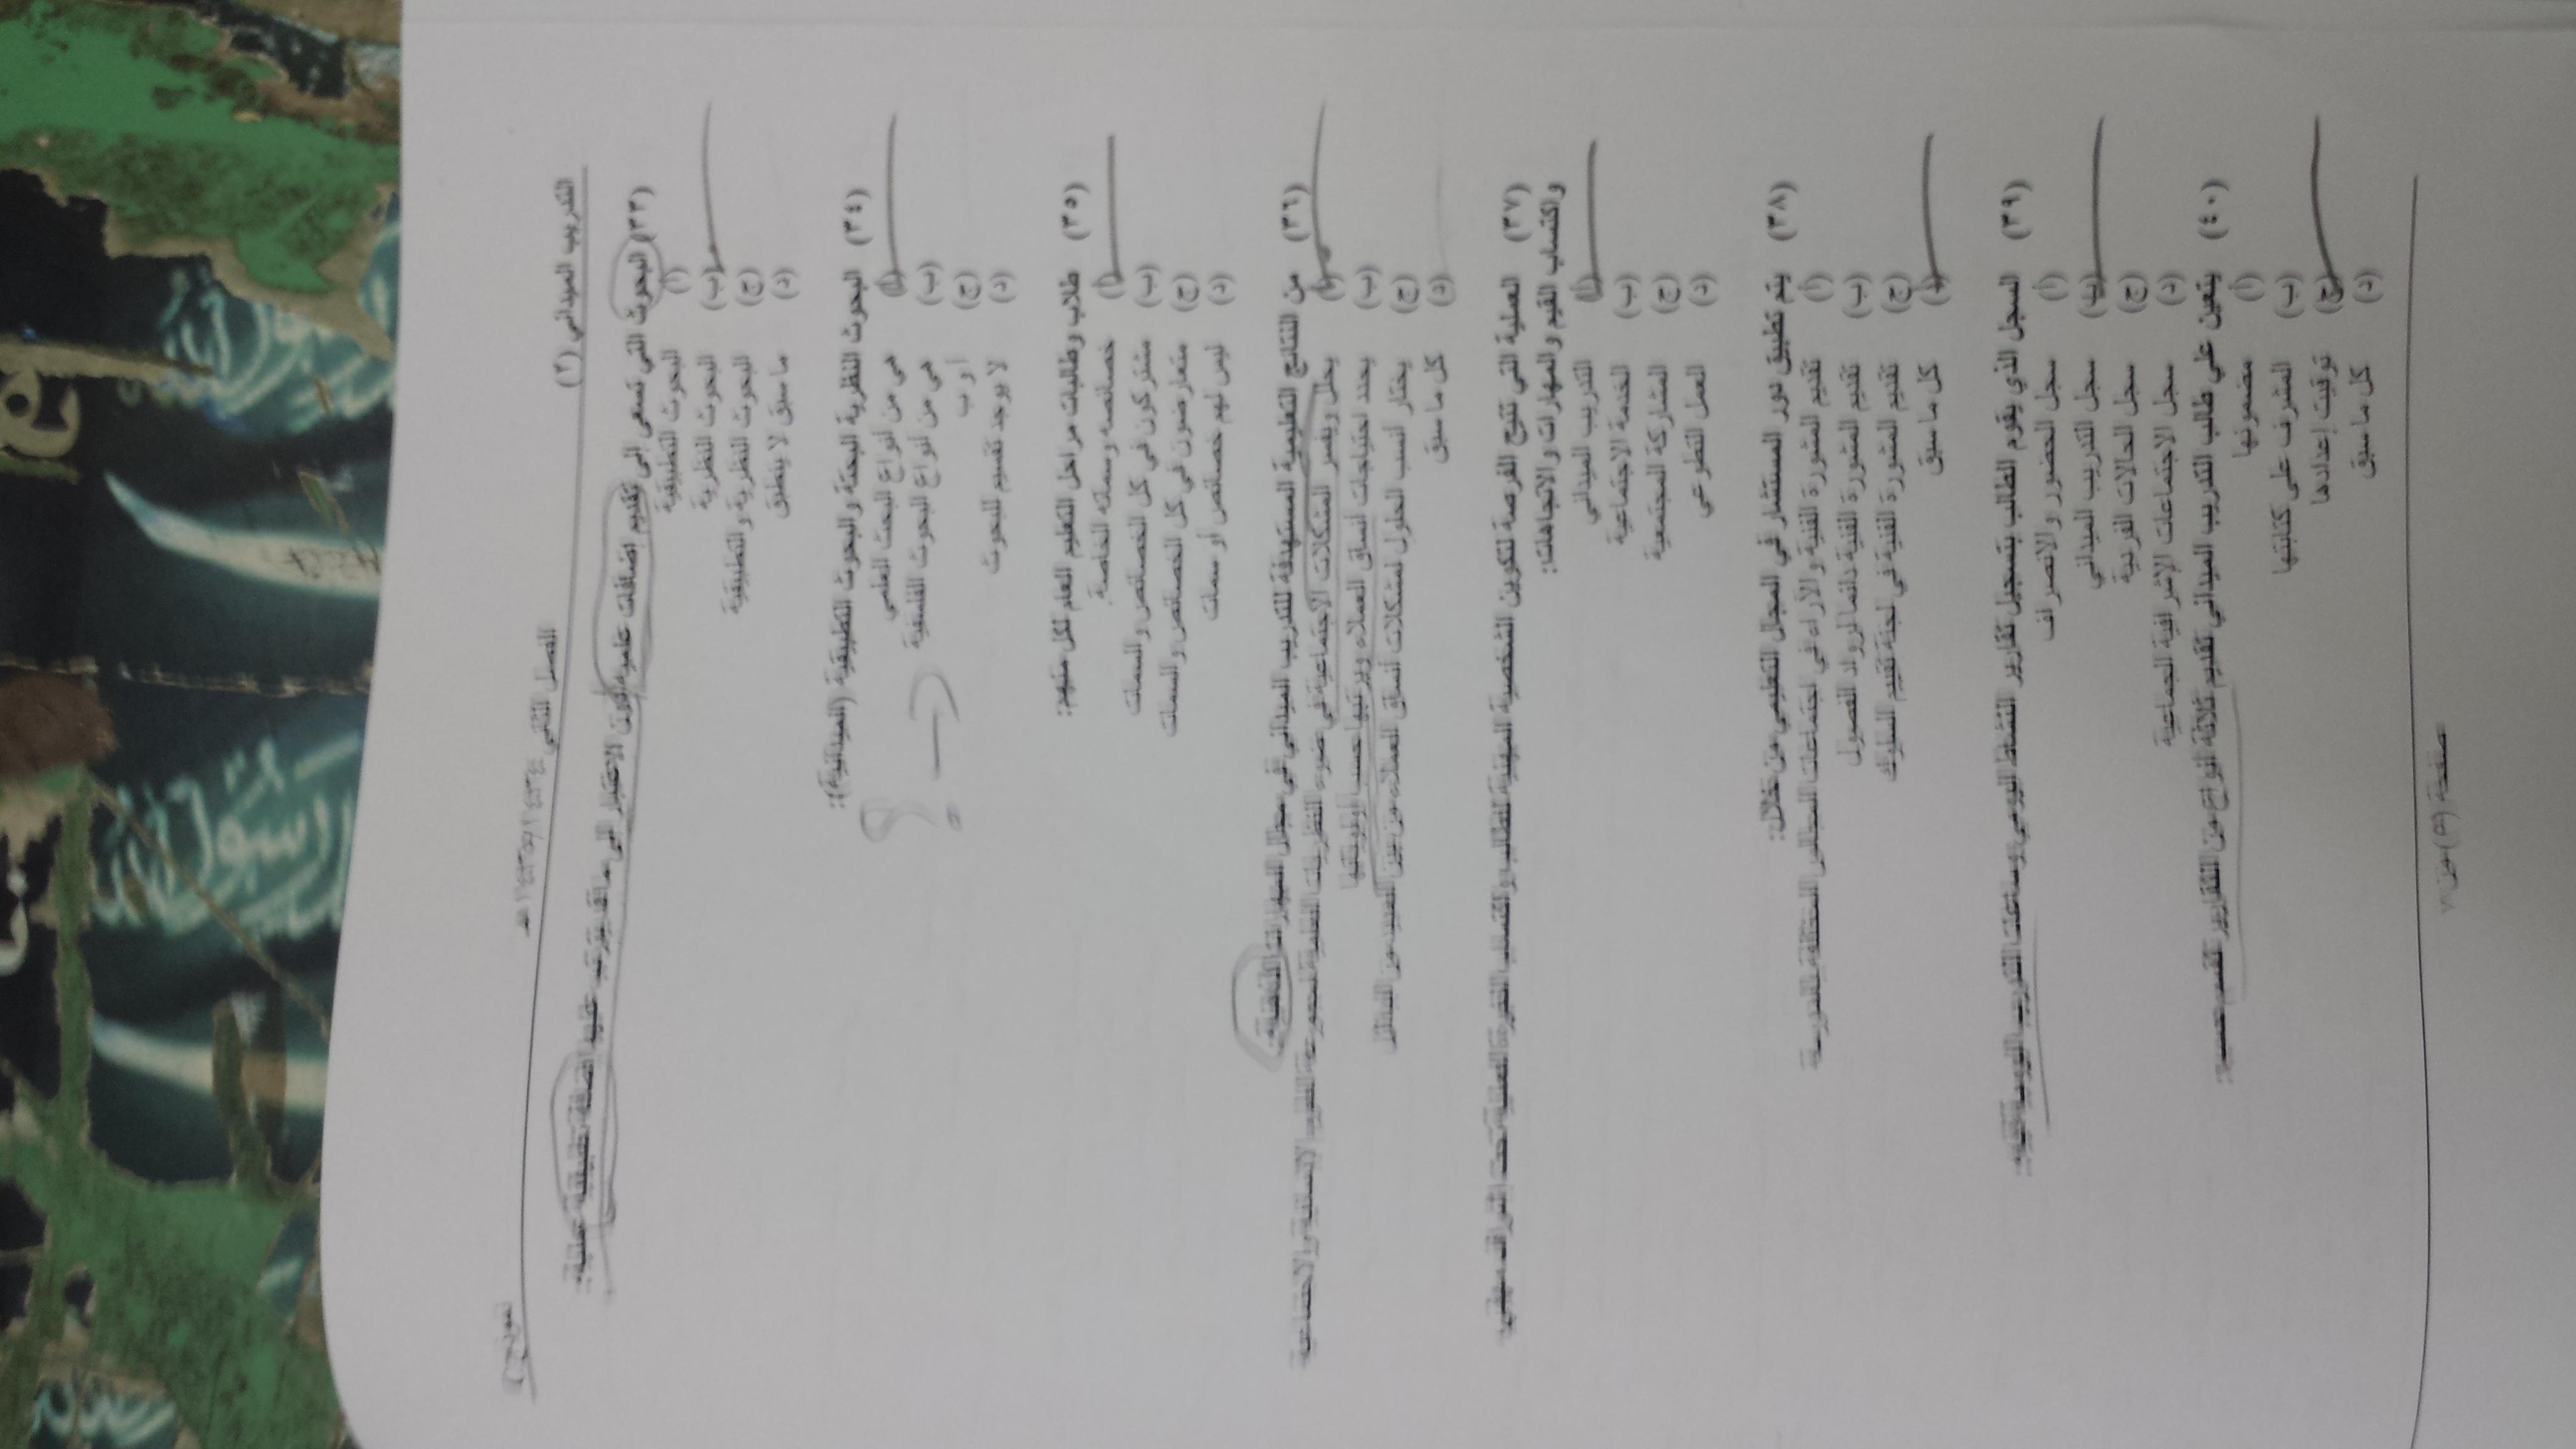 التدريب الميداني (٢)
الفصل الثاني ١٤٣٤/١٤٣٥هـ
نموذج
(٣٣) البحوث التي تسعى إلى تقديم إضافات علمية دون الاعتبار إلى ما قد يترتب عليها إضافة تطبيقية عملية:
(أ) البحوث التطبيقية
(ب) البحوث النظرية
(ج) البحوث النظرية والتطبيقية
(د) ما سبق لا ينطبق
(٣٤) البحوث النظرية البحتة والبحوث التطبيقية (الميدانية):
(أ) هي من أنواع البحث العلمي
(ب) هي من أنواع البحوث الفلسفية
(ج) أ و ب
(د) لا يوجد تقسيم للبحوث
(٣٥) طلاب وطالبات مراحل التعليم العام لكل منهم:
(أ) خصائصه وسماته الخاصة
(ب) مشتركون في كل الخصائص والسمات
(ج) متعارضون في كل الخصائص والسمات
(د) ليس لهم خصائص أو سمات
(٣٦) من النتائج التعليمية المستهدفة للتدريب الميداني في مجال المهارات الذهنية:
(أ) يحلل ويفسر المشكلات الاجتماعية في ضوء النظريات العلمية لمجموعة العلوم الإنسانية والاجتماعية
(ب) يحدد احتياجات أنساق العملاء ويرتبها حسب أولوياتها
(ج) يختار أنسب الحلول لمشكلات أنساق العملاء من بين العديد من البدائل
(د) كل ما سبق
(٣٧) العملية التي تتيح الفرصة لتكوين الشخصية المهنية للطالب واكتساب الخبرة العملية تحت إشراف مهني
واكتساب القيم والمهارات والاتجاهات:
(أ) التدريب الميداني
(ب) الخدمة الاجتماعية
(ج) المشاركة المجتمعية
(د) العمل التطوعي
(٣٨) يتم تطبيق دور المستشار في المجال التعليمي من خلال:
(أ) تقديم المشورة الفنية والآراء في اجتماعات المجالس المختلفة بالمدرسة
(ب) تقديم المشورة الفنية دائما لرواد الفصول
(ج) تقديم المشورة الفنية في لجنة تقييم السلوك
(د) كل ما سبق
(٣٩) السجل الذي يقوم الطالب بتسجيل تقارير النشاط اليومي وساعات التدريب اليومية فيه:
(أ) سجل الحضور والانصراف
(ب) سجل التدريب الميداني
(ج) سجل الحالات الفردية
(د) سجل الاجتماعات الإشرافية الجماعية
(٤٠) يتعين على طالب التدريب الميداني تقديم ثلاثة أنواع من التقارير تقسم حسب:
(أ) مضمونها
(ب) المشرف على كتابتها
(ج) توقيت إعدادها
(د) كل ما سبق